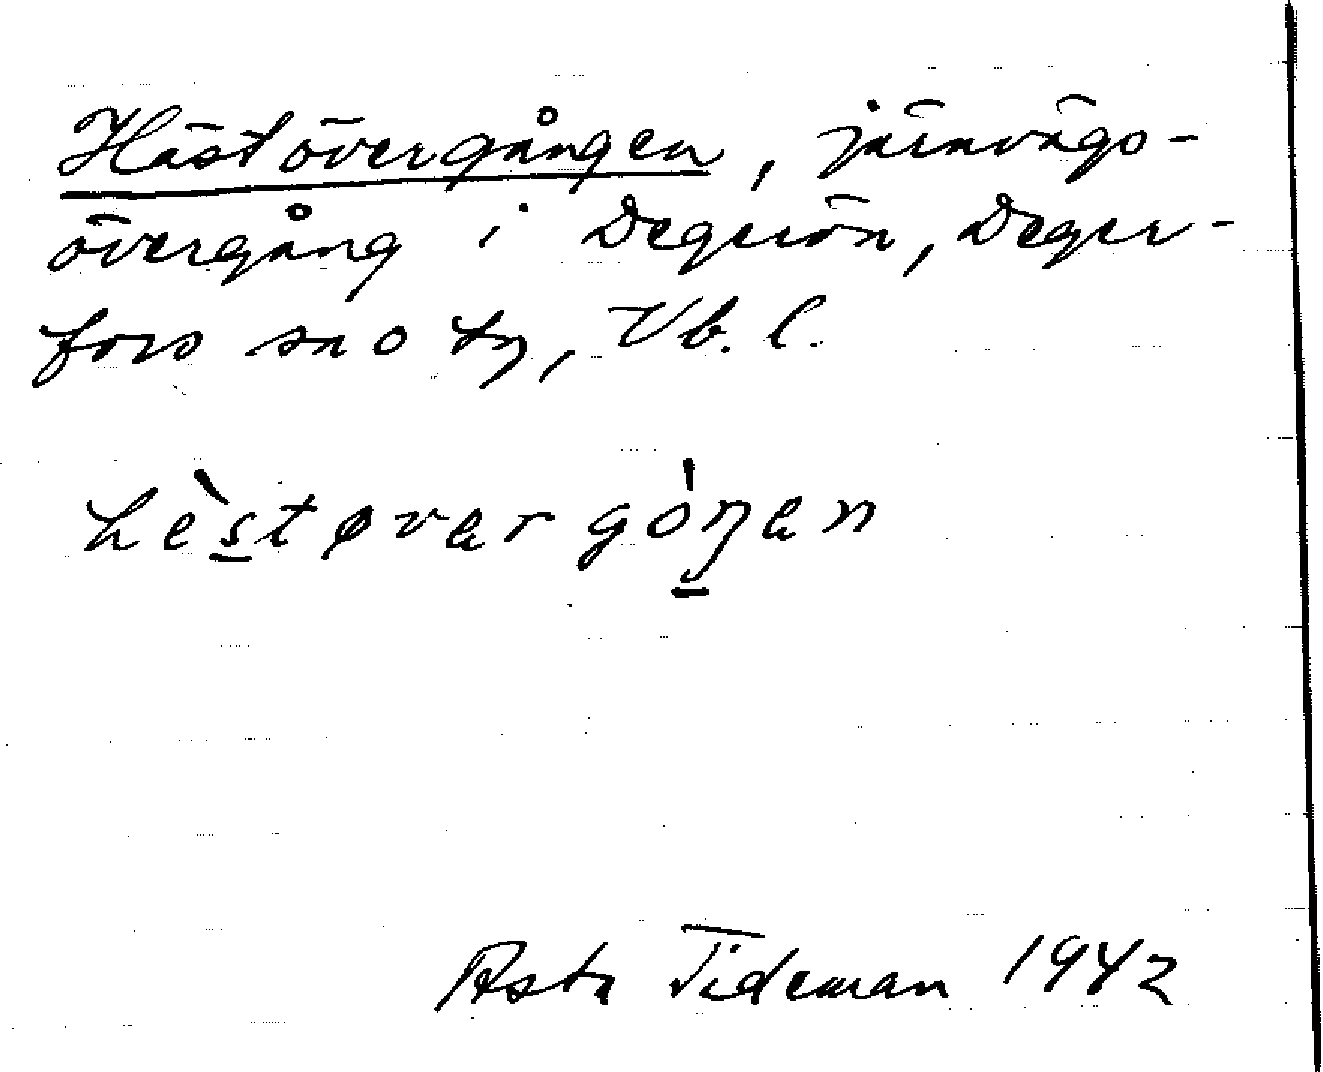 Hästövergången, järnvägs-
övergång i Degerön, Deger-
fors sn o tg, Vb. l.
hèstøvergóŋen
Asta Tideman 1942